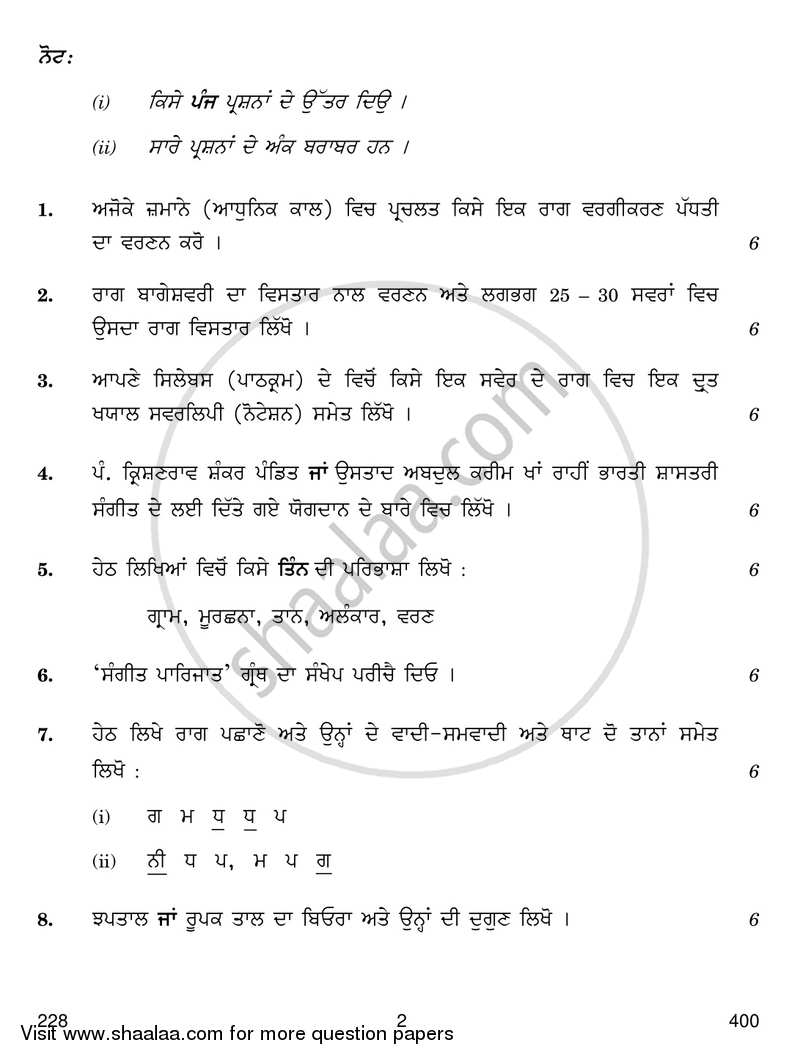 ਨੋਟ:
(i) ਕਿਸੇ ਪੰਜ ਪ੍ਰਸ਼ਨਾਂ ਦੇ ਉੱਤਰ ਦਿਉ ।
(ii) ਸਾਰੇ ਪ੍ਰਸ਼ਨਾਂ ਦੇ ਅੰਕ ਬਰਾਬਰ ਹਨ ।
1. ਅਜੋਕੇ ਜ਼ਮਾਨੇ (ਆਧੁਨਿਕ ਕਾਲ) ਵਿਚ ਪ੍ਰਚਲਤ ਕਿਸੇ ਇਕ ਰਾਗ ਵਰਗੀਕਰਣ ਪੱਧਤੀ
ਦਾ ਵਰਣਨ ਕਰੋ । 6
2. ਰਾਗ ਬਾਗੇਸ਼ਵਰੀ ਦਾ ਵਿਸਤਾਰ ਨਾਲ ਵਰਣਨ ਅਤੇ ਲਗਭਗ 25 – 30 ਸਵਰਾਂ ਵਿਚ
ਉਸਦਾ ਰਾਗ ਵਿਸਤਾਰ ਲਿੱਖੋ । 6
3. ਆਪਣੇ ਸਿਲੇਬਸ (ਪਾਠਕ੍ਰਮ) ਦੇ ਵਿਚੋਂ ਕਿਸੇ ਇਕ ਸਵੇਰ ਦੇ ਰਾਗ ਵਿਚ ਇਕ ਦ੍ਰੁਤ
ਖਯਾਲ ਸਵਰਲਿਪੀ (ਨੋਟੇਸ਼ਨ) ਸਮੇਤ ਲਿੱਖੋ । 6
4. ਪੰ. ਕ੍ਰਿਸ਼ਣਰਾਵ ਸ਼ੰਕਰ ਪੰਡਿਤ ਜਾਂ ਉਸਤਾਦ ਅਬਦੁਲ ਕਰੀਮ ਖਾਂ ਰਾਹੀਂ ਭਾਰਤੀ ਸ਼ਾਸਤਰੀ
ਸੰਗੀਤ ਦੇ ਲਈ ਦਿੱਤੇ ਗਏ ਯੋਗਦਾਨ ਦੇ ਬਾਰੇ ਵਿਚ ਲਿੱਖੋ । 6
5. ਹੇਠ ਲਿਖਿਆਂ ਵਿਚੋਂ ਕਿਸੇ ਤਿੰਨ ਦੀ ਪਰਿਭਾਸ਼ਾ ਲਿਖੋ : 6
ਗ੍ਰਾਮ, ਮੂਰਛਨਾ, ਤਾਨ, ਅਲੰਕਾਰ, ਵਰਣ
6. ‘ਸੰਗੀਤ ਪਾਰਿਜਾਤ’ ਗ੍ਰੰਥ ਦਾ ਸੰਖੇਪ ਪਰੀਚੈ ਦਿਓ । 6
7. ਹੇਠ ਲਿਖੇ ਰਾਗ ਪਛਾਣੋ ਅਤੇ ਉਨ੍ਹਾਂ ਦੇ ਵਾਦੀ-ਸਮਵਾਦੀ ਅਤੇ ਥਾਟ ਦੋ ਤਾਨਾਂ ਸਮੇਤ
ਲਿਖੋ : 6
(i) ਗ ਮ ਧ ਧ ਪ
(ii) ਨੀ ਧ ਪ, ਮ ਪ ਗ
8. ਝਪਤਾਲ ਜਾਂ ਰੂਪਕ ਤਾਲ ਦਾ ਬਿਓਰਾ ਅਤੇ ਉਨ੍ਹਾਂ ਦੀ ਦੁਗੁਣ ਲਿਖੋ । 6
shaalaa.com
228 2 400
Visit www.shaalaa.com for more question papers